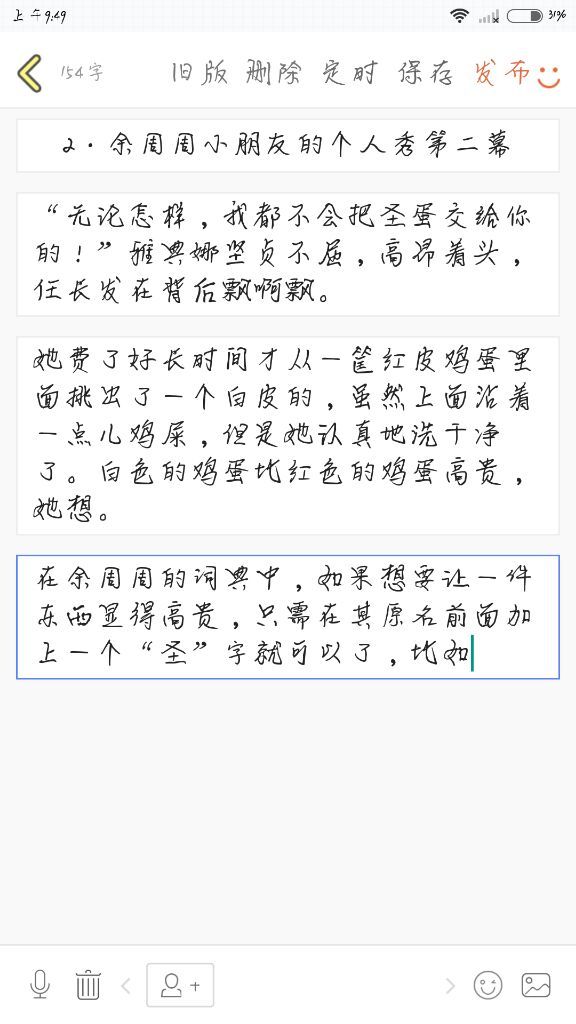 上午9:49 31%
154字 旧版 删除 定时 保存 发布
2·余周周小朋友的个人秀第二幕
“无论怎样，我都不会把圣蛋交给你
的！”雅典娜坚贞不屈，高昂着头，
任长发在背后飘啊飘。
她费了好长时间才从一筐红皮鸡蛋里
面挑出了一个白皮的，虽然上面沾着
一点儿鸡屎，但是她认真地洗干净
了。白色的鸡蛋比红色的鸡蛋高贵，
她想。
在余周周的词典中，如果想要让一件
东西显得高贵，只需在其原名前面加
上一个“圣”字就可以了，比如